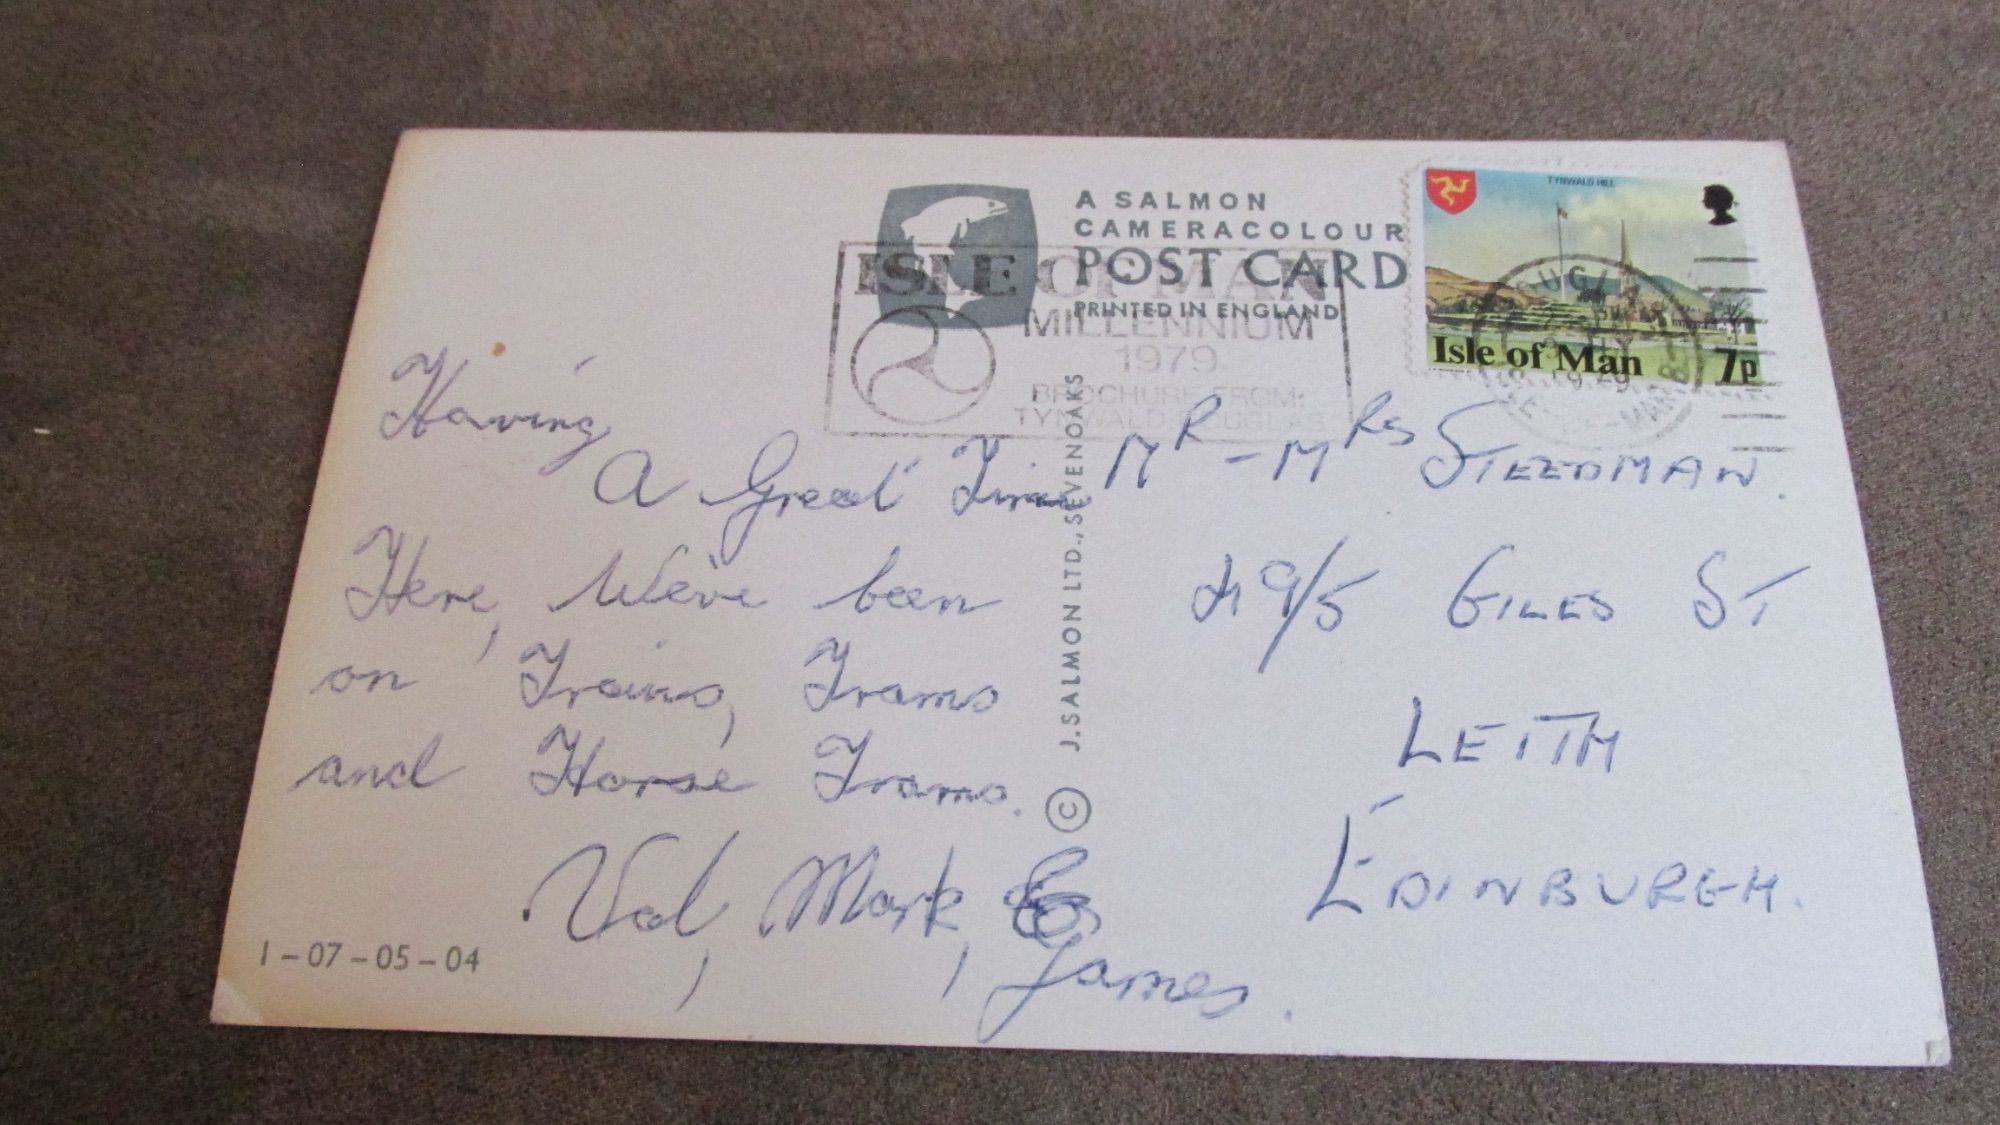 A SALMON
CAMERACOLOUR
POST CARD
PRINTED IN ENGLAND
ISLE OF MAN
MILLENNIUM
1979
BROCHURE FROM:
TYNWALD DOUGLAS
TYNWALD HILL
Isle of Man 7p
Having
A Great Time
Here, We've been
on Trains, Trams
and Horse Trams.
Val, Mark, &
James.
1-07-05-04
© J. SALMON LTD., SEVENOAKS
MR - MRS STEEDMAN.
49/5 GILES ST
LEITH
EDINBURGH.